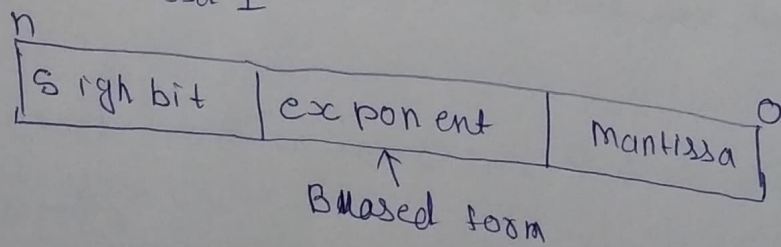 n
Sigh bit exponent Mantissa 0
↑
Biased form